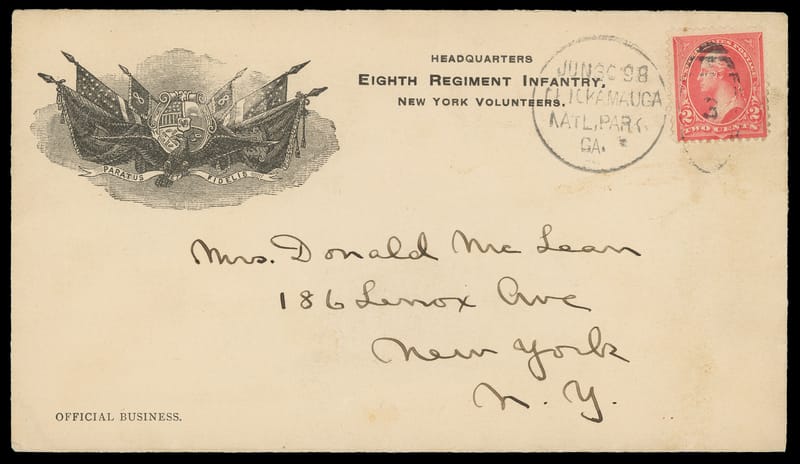 HEADQUARTERS
EIGHTH REGIMENT INFANTRY,
NEW YORK VOLUNTEERS.
JUN 30 98
CHICKAMAUGA
NATL. PARK.
GA.
UNITED STATES POSTAGE
2 2
TWO CENTS
3
PARATUS FIDELIS
8 8
Mrs. Donald McLean
186 Lenox Ave
New York
N. Y.
OFFICIAL BUSINESS.